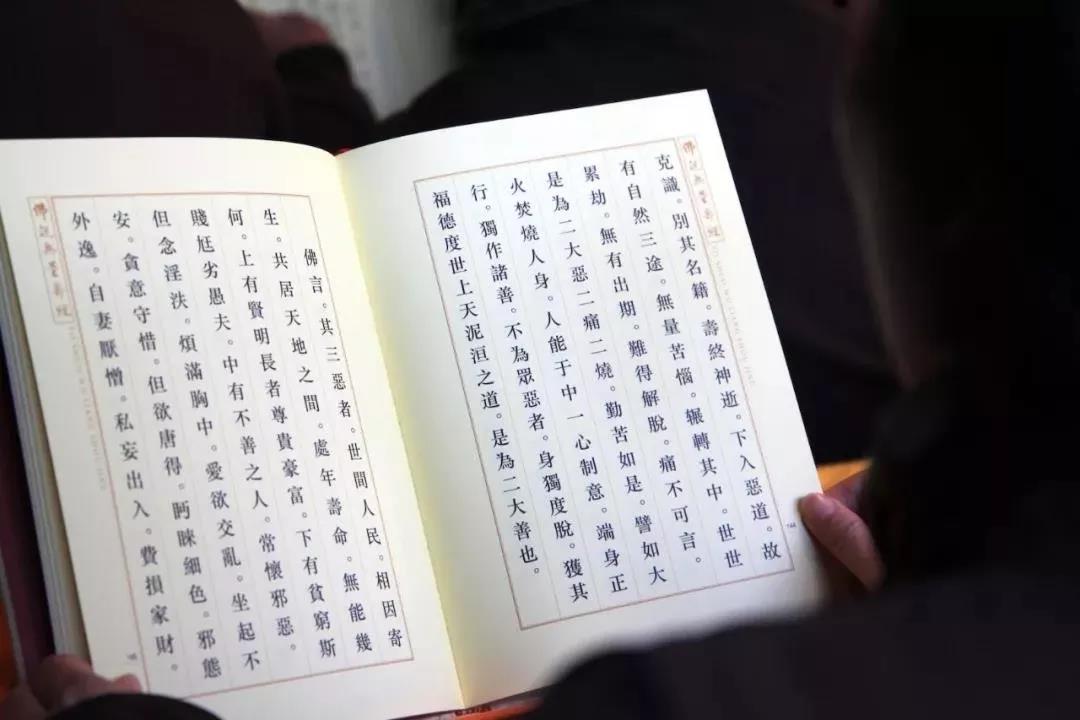 佛說無量壽經
FO SHUO WU LIANG SHOU JING
克識。別其名籍。壽終神逝。下入惡道。故
有自然三途。無量苦惱。輾轉其中。世世
累劫。無有出期。難得解脫。痛不可言。
是為二大惡二痛二燒。勤苦如是。譬如大
火焚燒人身。人能于中一心制意。端身正
行。獨作諸善。不為眾惡者。身獨度脫。獲其
福德度世上天泥洹之道。是為二大善也。
佛言。其三惡者。世間人民。相因寄
生。共居天地之間。處年壽命。無能幾
何。上有賢明長者尊貴豪富。下有貧窮斯
賤尪劣愚夫。中有不善之人。常懷邪惡。
但念淫泆。煩滿胸中。愛欲交亂。坐起不
安。貪意守惜。但欲唐得。眄睞細色。邪態
外逸。自妻厭憎。私妄出入。費損家財。
佛說無量壽經
FO SHUO WU LIANG SHOU JING